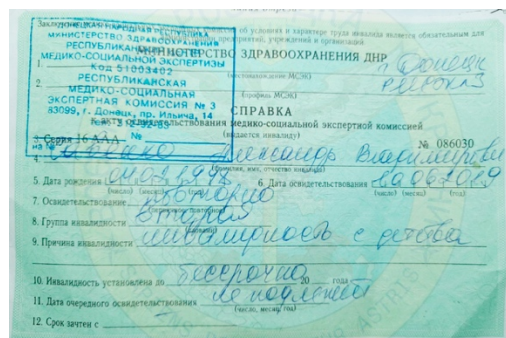 Заключе
об условиях и характере труда инвалида является обязательным для
предприятий, учреждений и организаций.
ДОНЕЦКАЯ НАРОДНАЯ РЕСПУБЛИКА
МИНИСТЕРСТВО ЗДРАВООХРАНЕНИЯ
РЕСПУБЛИКАНСКИЙ
МЕДИКО-СОЦИАЛЬНОЙ ЭКСПЕРТИЗЫ
Код 51003402
РЕСПУБЛИКАНСКАЯ
МЕДИКО-СОЦИАЛЬНАЯ
ЭКСПЕРТНАЯ КОМИССИЯ № 3
83099, г. Донецк, пр. Ильича, 14
№
МИНИСТЕРСТВО ЗДРАВООХРАНЕНИЯ ДНР
1.
г. Донецк
(местонахождение МСЭК)
2.
(профиль МСЭК)
СПРАВКА
о акте освидетельствования медико-социальной экспертной комиссией
(выдается инвалиду)
3. Серия 16 ААА
№ 086030
4. Александр Владимирович
(фамилия, имя, отчество инвалида)
5. Дата рождения
(число) (месяц) (год)
6. Дата освидетельствования
(число) (месяц) (год)
7. Освидетельствование повторно
8. Группа инвалидности вторая
9. Причина инвалидности инвалидность с детства
10. Инвалидность установлена до бессрочно 20 года
11. Дата очередного освидетельствования не подлежит
(число, месяц, год)
12. Срок зачтен с